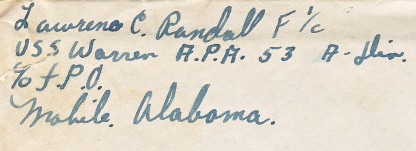 Lawrence C. Randall F 1/c
USS Warren A.P.A. 53 A-Div.
c/o F.P.O.
Mobile. Alabama.